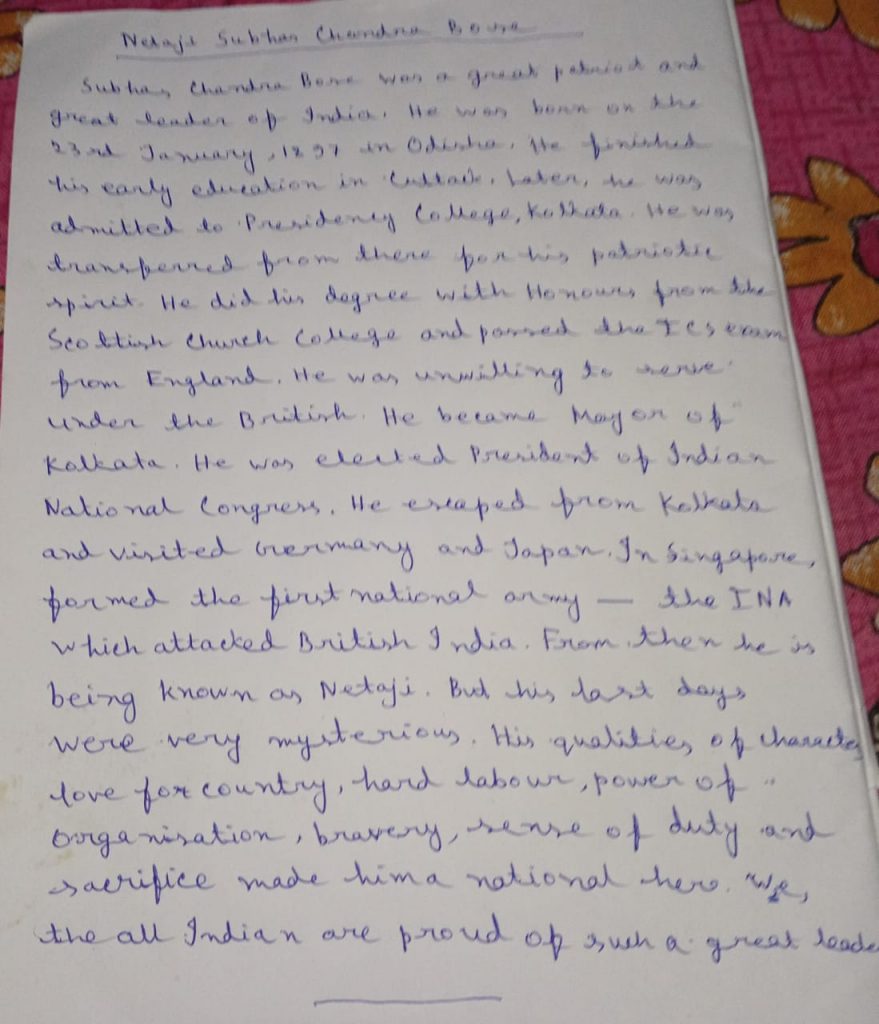 Netaji Subhas Chandra Bose
Subhas Chandra Bose was a great patriot and
great leader of India. He was born on the
23rd January, 1897 in Odisha. He finished
his early education in Cuttack. Later, he was
admitted to Presidency College, Kolkata. He was
transferred from there for his patriotic
spirit. He did his degree with Honours from the
Scottish Church College and passed the ICS exam
from England. He was unwilling to serve
under the British. He became Mayor of
Kolkata. He was elected President of Indian
National Congress. He escaped from Kolkata
and visited Germany and Japan. In Singapore,
formed the first national army — the INA
which attacked British India. From then he is
being known as Netaji. But his last days
were very mysterious. His qualities of character
love for country, hard labour, power of
organisation, bravery, sense of duty and
sacrifice made him a national hero. We,
the all Indian are proud of such a great leade